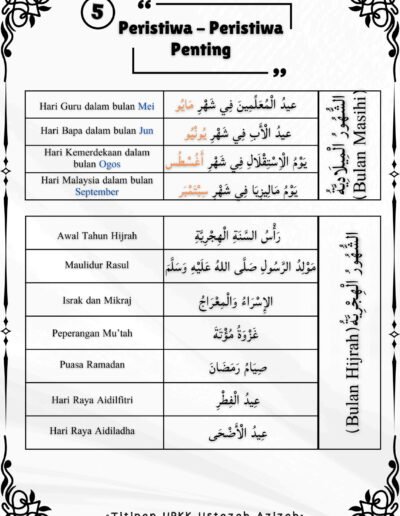 5
“
Peristiwa – Peristiwa
Penting
”
Hari Guru dalam bulan Mei
عيدُ الْمُعَلِّمِينَ فِي شَهْرِ مَايُو
Hari Bapa dalam bulan Jun
عيدُ الْأَبِ فِي شَهْرِ يُونْيُو
Hari Kemerdekaan dalam
bulan Ogos
يَوْمُ الْاِسْتِقْلَالِ فِي شَهْرِ أَغُسْطُس
Hari Malaysia dalam bulan
September
يَوْمُ مَالِيزِيَا فِي شَهْرِ سِبْتَمْبَر
الشُّهُورُ الْمِيلَادِيَّةُ
(Bulan Masihi)
Awal Tahun Hijrah
رَأْسُ السَّنَةِ الْهِجْرِيَّةِ
Maulidur Rasul
مَوْلِدُ الرَّسُولِ صَلَّى اللهُ عَلَيْهِ وَسَلَّمَ
Israk dan Mikraj
الإِسْرَاءُ وَالْمِعْرَاجُ
Peperangan Mu’tah
غَزْوَةُ مُؤْتَةَ
Puasa Ramadan
صِيَامُ رَمَضَانَ
Hari Raya Aidilfitri
عِيدُ الْفِطْرِ
Hari Raya Aidiladha
عِيدُ الْأَضْحَى
الشُّهُورُ الْهِجْرِيَّةُ
(Bulan Hijrah)
-Titipan UPKK Ustazah Azizah-